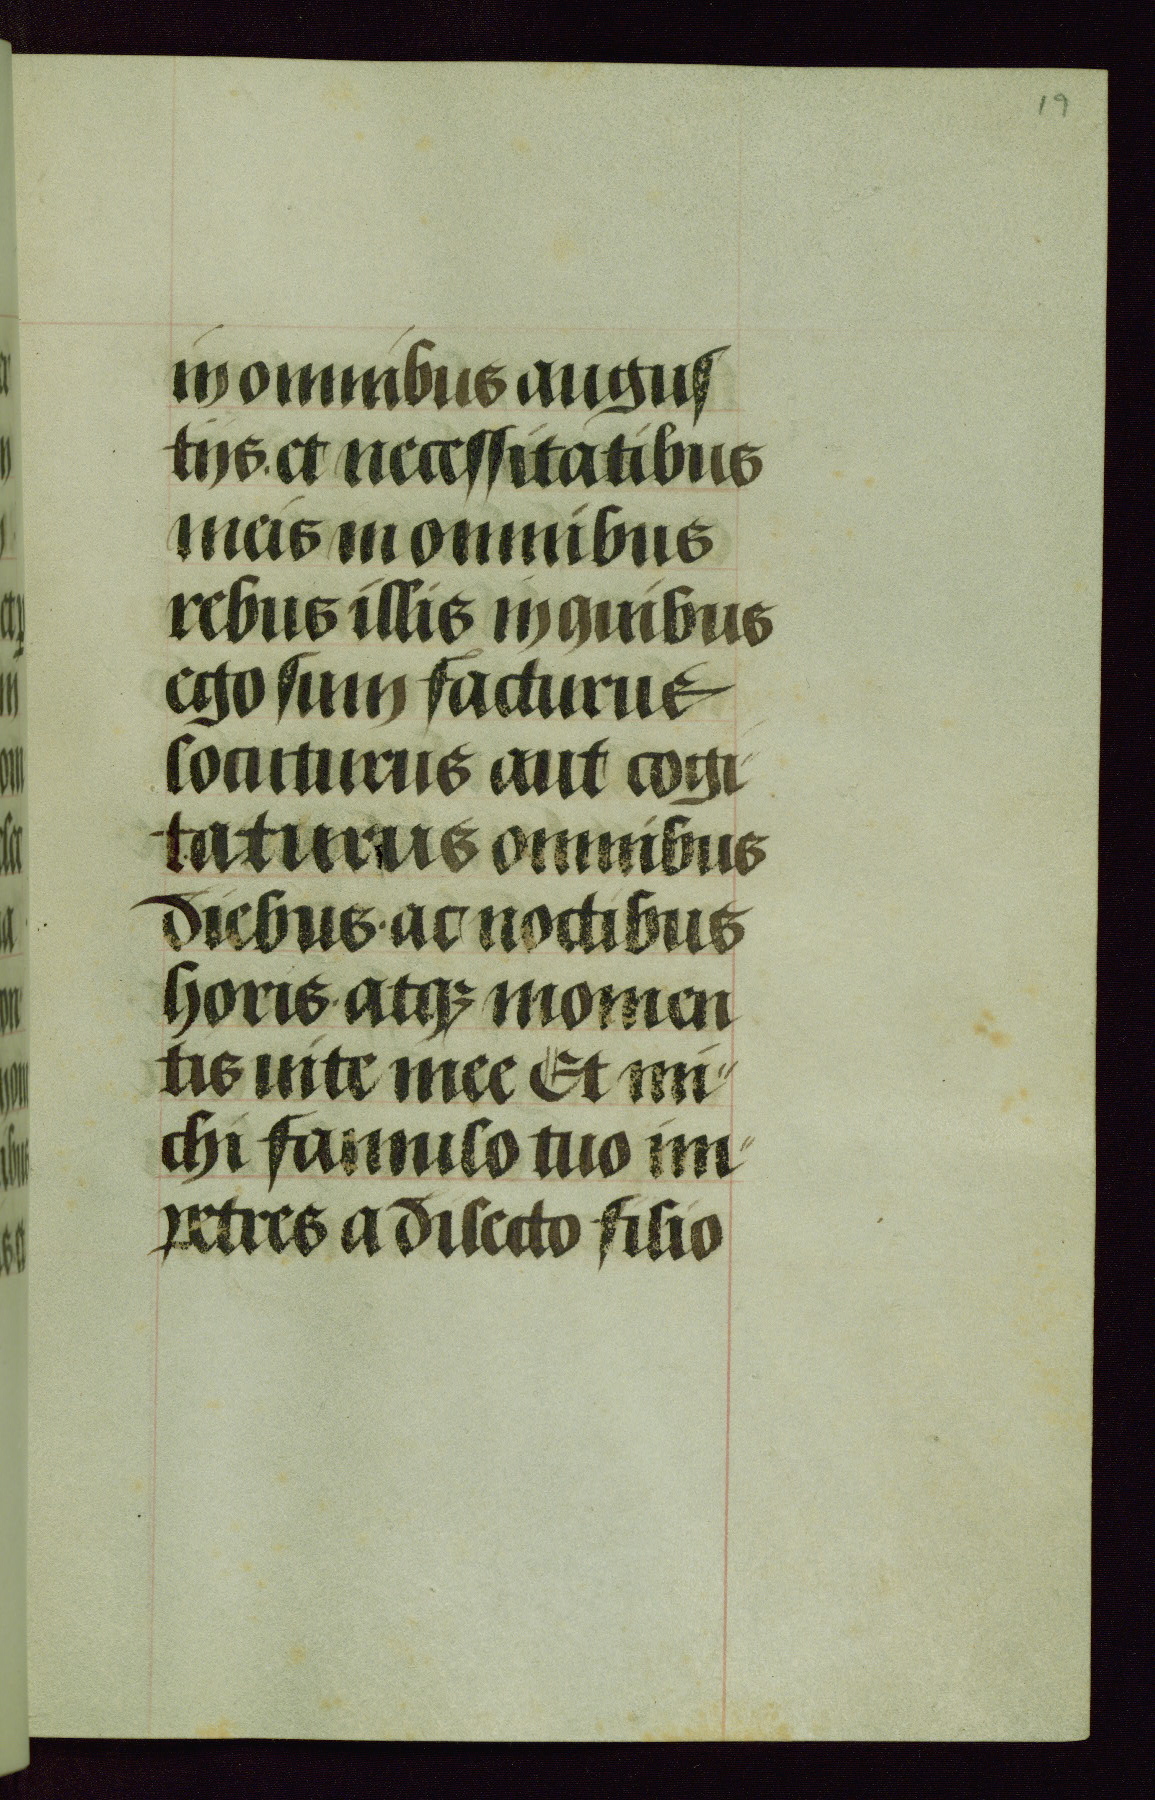 19
in omnibus angus
tijs. et necessitatibus
meis in omnibus
rebus illis in quibus
ego sum facturus
locuturus aut cogi
taturus omnibus
diebus. ac noctibus
horis. atqꝫ momen
tis uite mee Et mi
chi famulo tuo im
petres a dilecto filio